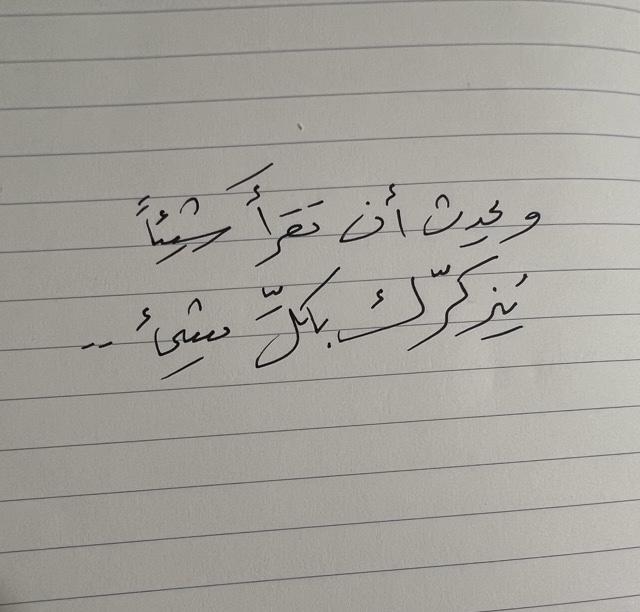 ويحدث أن تقرأَ شيئاً
يُذكرّك بكلِّ شيء ..